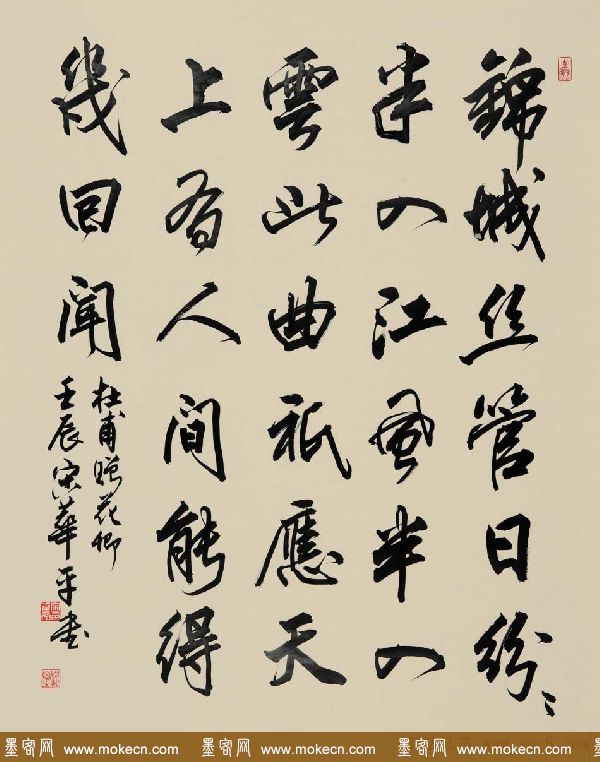 錦城丝管日紛〻
半入江風半入
雲此曲祇應天
上有人間能得
幾回聞
杜甫贈花卿
壬辰宋華平書
墨客网 www.mokecn.com 墨客网 www.mokecn.com 墨客网 www.mokecn.com 墨客网